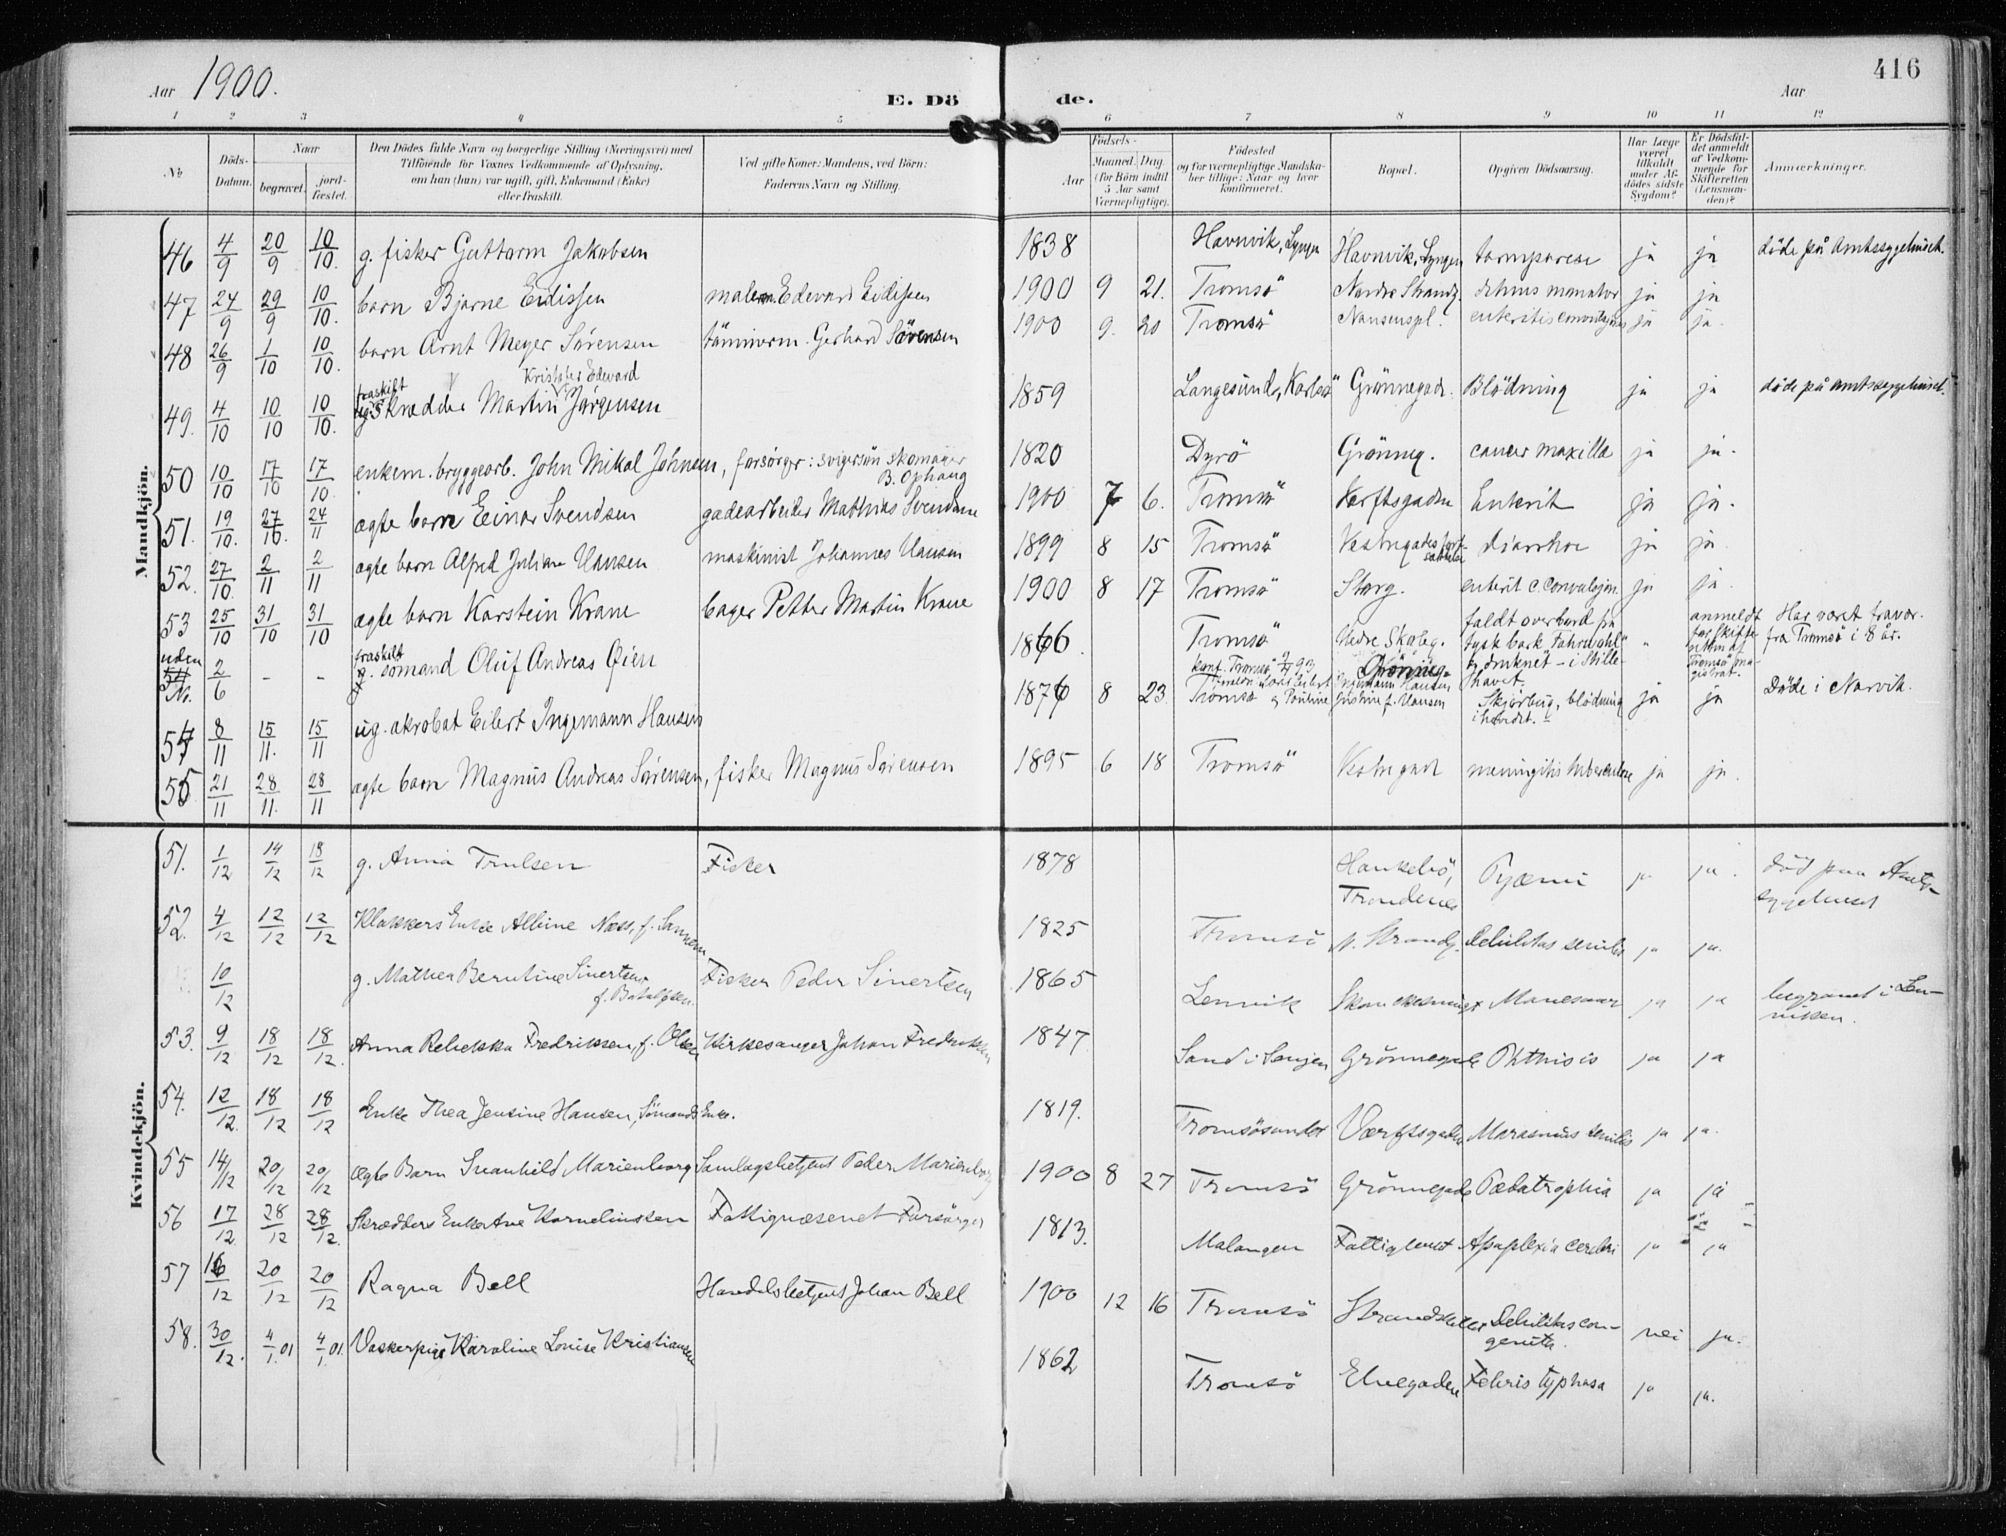 416
Aar 1900.
E. Dö de.
Aar
1 2 3 4 5 6 7 8 9 10 11 12
No
Döds-Datum.
Naar
begravet.
jord-fæstet.
Den Dödes fulde Navn og borgerlige Stilling (Næringsvei) med
Tilföiende for Voxnes Vedkommende af Oplysning,
om han (hun) var ugift, gift, Enkemand (Enke)
eller fraskilt.
Ved gifte Koner: Mandens, ved Börn:
Faderens Navn og Stilling.
Födsels-
Aar
Maaned. Dag.
(for Börn indtil
5 Aar samt
Værnepligtige).
Födested
og for værnepligtige Mandska-
ber tillige: Naar og hvor
konfirmeret.
Bopæl.
Opgiven Dödsaarsag.
Har Læge
været
tilkaldt
under Af-
dödes sidste
Sygdom?
Er Dödsfal-
det anmeldt
af Vedkom-
mende for
Skifteretten
(Lensman-
den)?
Anmærkninger.
Mandkjön.
46 4/9 20/9 10/10. g. fisker Guttorm Jakobsen 1838 Havnvik, Lyngen Havnvik, Lyngen tarmparese ja ja döde på Amtssygehuset.
47 24/9 29/9 10/10. barn Bjarne Eidissen maler Edevard Eidissen 1900 9 21. Tromsö Nordre Strandg. ja ja
48 26/9 1/10 10/10. barn Arnt Meyer Sörensen tömmerm. Gerhard Sörensen 1900 9. 20 Tromsö Nansenspl. enteritis ja ja.
fraskilt Kristofer Edevard
49. 4/10 10/10 10/10. Skrædder Martin Jørgensen 1859 Langesund, Karlsö Grönnegad. Blödning ja ja döde på amtssygehuset.
50 10/10 17/10 17/10. enkem. bryggearb. John Mikal Johnsen, forsörger: svigersön skomager
B. Ophaug 1820 Dyrö Grönneg. cancer maxilla ja ja.
51. 19/10. 27/10. 24/11 ægte barn Einar Svendsen gadearbeider Mathias Svendsen 1900 7 6. Tromsö Verftsgaden Enterit ja ja.
52. 27/10. 2/11 2/11 ægte barn Alfred Julian Hansen maskinist Johannes Hansen 1899 8 15 Tromsö Vestregades diarrhoe ja ja.
53 25/10 31/10 31/10 ægte barn Karstein Krane bager Petter Martin Krane 1900 8 17 Tromsö Storg. enterit c. convulsjon ja ja.
uden
No. 2/6 - - fraskilt sömand Oluf Andreas Öien 1866. Tromsö Nedre Skoleg. faldt overbord fra
tysk bark
og druknet - i Stille-
havet. " anmeldt
for skifte
retten af
Tromsö ma-
gistrat. Har været fravær.
fra Tromsö i 8 år.
54 8/11 15/11. 15/11 ug. akrobat Eilert Ingemann Hansen 1876 8 23 Tromsö Skjörbug, blödning
i hovdet. ja ja Döde i Narvik.
55. 21/11 28/11. 28/11 ægte barn Magnus Andreas Sörensen, fisker Magnus Sörensen 1895 6 18 Tromsö Vestregad meningitis tuberculose ja ja.
Kvindekjön.
51. 1/12 14/12 18/12 g. Anna Trulsen Fisker 1878 Trondenes Pyæmi ja ja. död paa Amts-
sygehuset
52. 4/12 12/12 12/12 Klokkers Enke Albine Næss, f. 1825 Tromsö N. Strandg. Debilitas senilis ja ja.
10/12 g. Mathea Berntine Sivertsen
f. Fisker Peder Sivertsen 1865 Lenvik ja ja begravet i Len-
viken.
53. 9/12 18/12 18/12. Anna Rebekka Fredriksen, f. Olsen Kirkesanger Johan Fredriksen 1847 Sand i Senjen Grönnegade Phthisis ja ja
54. 12/12. 18/12 18/12 Enke Thea Jensine Hansen, Sömands Enke. 1819. Tromsösundet Værftsgaden Marasmus senilis ja ja.
55 14/12 20/12 20/12 Ægte Barn Svanhild Marienborg Samlagsbetjent Peder Marienborg 1900 8 27 Tromsö Grönnegade Pædatrophia ja ja
56 17/12. 28/12 28/12. Skrædders Enke Ane Kornelinssen Fattigvæsenet Forsörger 1813. Malangen Fattighuset Apoplexia cerebri ja ja
57 16/12 20/12 20/12 Ragna Bell Handelsbetjent Johan Bell 1900 12 16 Tromsö Debilitas con-
genita. nei ja.
58. 30/12. 4/1.01 4/1.01. Vaskerpige Karoline Louise Kristiansen 1862 Tromsö Elvegaden Febris typhosa ja ja.